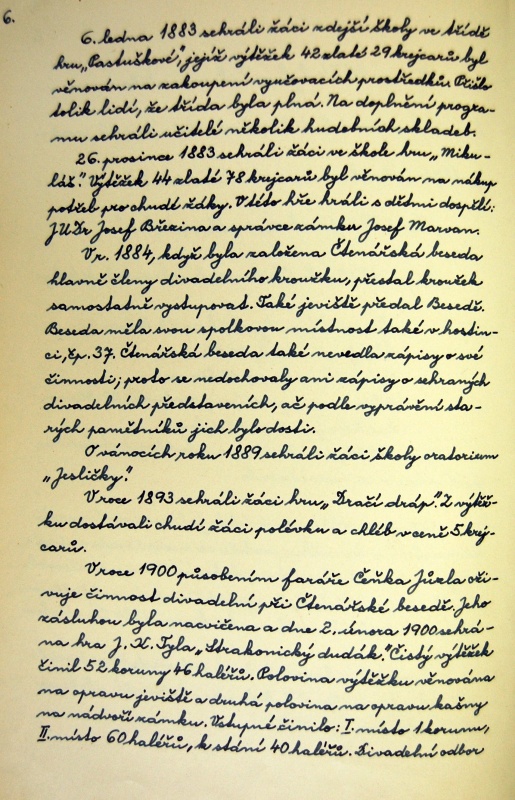 6.
6. ledna 1883 sehráli žáci zdejší školy ve třídě
hru „Pastuškové“, jejíž výtěžek 42 zlaté 29 krejcarů byl
věnován na zakoupení vyučovacích prostředků. Přišlo
tolik lidí, že třída byla plná. Na doplnění progra-
mu sehráli učitelé několik hudebních skladeb.
26. prosince 1883 sehráli žáci ve škole hru „Miku-
láš“. Výtěžek 44 zlaté 78 krejcarů byl věnován na nákup
potřeb pro chudé žáky. V této hře hráli s dětmi dospělí:
JUDr Josef Březina a správce zámku Josef Marvan.
V r. 1884, když byla založena Čtenářská beseda
hlavně členy divadelního kroužku, přestal kroužek
samostatně vystupovat. Také jeviště předal Besedě.
Beseda měla svou spolkovou místnost také v hostin-
ci, čp. 37. Čtenářská beseda také nevedla zápisy o své
činnosti; proto se nedochovaly ani zápisy o sehraných
divadelních představeních, ač podle vyprávění sta-
rých pamětníků jich bylo dosti.
O vánocích roku 1889 sehráli žáci školy oratorium
„Jesličky“.
V roce 1893 sehráli žáci hru „Dračí dráp“. Z výtěž-
ku dostávali chudí žáci polévku a chléb v ceně 5 krej-
carů.
V roce 1900 působením faráře Čeňka Jůzla oži-
vuje činnost divadelní při Čtenářské besedě. Jeho
zásluhou byla nacvičena a dne 2. února 1900 sehrá-
na hra J. K. Tyla „Strakonický dudák“. Čistý výtěžek
činil 52 koruny 46 haléřů. Polovina výtěžku věnována
na opravu jeviště a druhá polovina na opravu kašny
na nádvoří zámku. Vstupné činilo: I. místo 1 korunu,
II. místo 60 haléřů, k stání 40 haléřů. Divadelní odbor